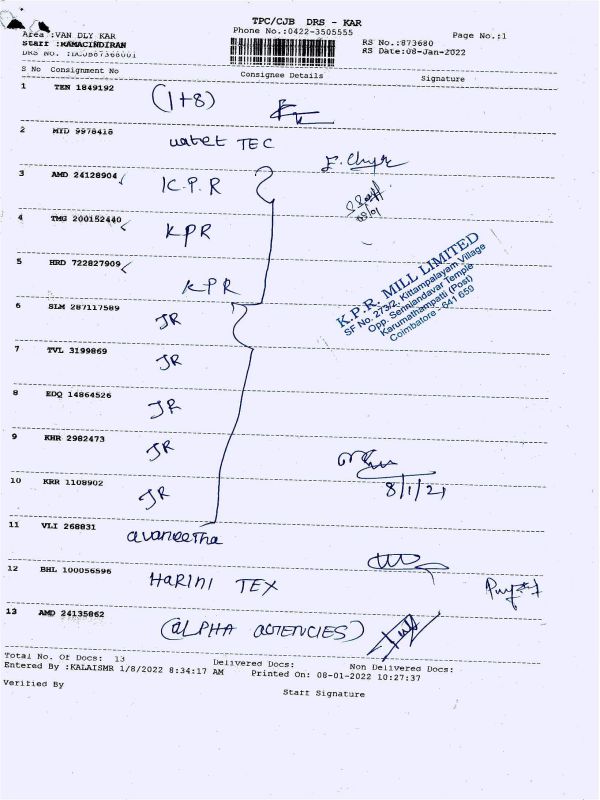 TPC/CJB DRS - KAR
Area :VAN DLY KAR
Phone No.:0422-3505555
Page No.:1
Staff :RAMACINDIRAN
RS No.:873680
DRS No. :DCJB87368001
RS Date:08-Jan-2022
S No Consignment No Consignee Details Signature
1 TEN 1849192 (1+8)
2 MYD 9978418 watet TEC
3 AMD 24128904 K.P.R
4 TMG 200152440 KPR
5 HRD 722827909 KPR
K.P.R. MILL LIMITED
SF No. 273/2, Kittampalayam Village
Opp. Senniandavar Temple
Karumathampatti (Post)
Coimbatore - 641 650
6 SLM 287117589 JR
7 TVL 3199869 JR
8 EDQ 14864526 JR
9 KHR 2982473 JR
10 KRR 1108902 JR
8/1/21
11 VLI 268831 avaneetha
12 BHL 100056596 HARINI TEX
13 AMD 24135862 (ALPHA AGENCIES)
Total No. Of Docs: 13 Delivered Docs: Non Delivered Docs:
Entered By :KALAISMR 1/8/2022 8:34:17 AM Printed On: 08-01-2022 10:27:37
Verified By Staff Signature